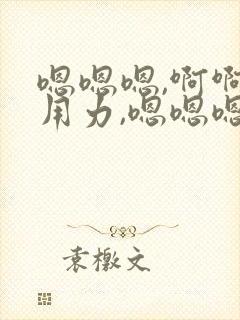 嗯嗯嗯,啊啊
用力,嗯嗯嗯
袁檄文